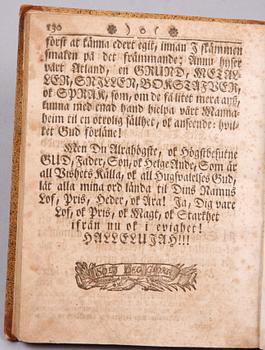 130 ) o (
först at känna edert egit, innan I skämmen
smaken på det främmande; Annu hyser
vårt Atland, en GRUND, METAL-
LER, SNILLEN, BOKSTAFVER,
ok SPRÅK, som, om de få litet mera ans,
kunna med enad hand hielpa vårt Manna-
heim til en otrolig sällhet, ok anseende: hvil-
ket Gud förläne!
Men Du Alrahögste, ok Högstbesutne
GUD, Fader, Son, ok Helge Ande, Som är
all Vishets Källa, ok all Hugsvalelses Gud,
låt alla mina ord lända til Dins Namns
Lof, Pris, Heder, ok Ära! Ja, Dig vare
Lof, ok Pris, ok Magt, ok Starkhet
ifrån nu ok i evighet!
HALLELUJAH!!!
SOLI DEO GLORIA